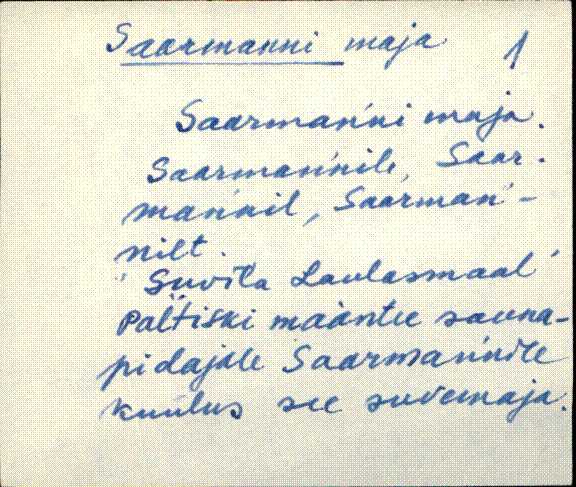 Saarmanni maja
1
Saarman'ni maja.
Saarman'nile, Saar-
man'nil, Saarman'-
nilt.
'Suvila Laulasmaal'
Paltiski maantee sauna-
pidajale Saarman'nile
kuulus see suvemaja.